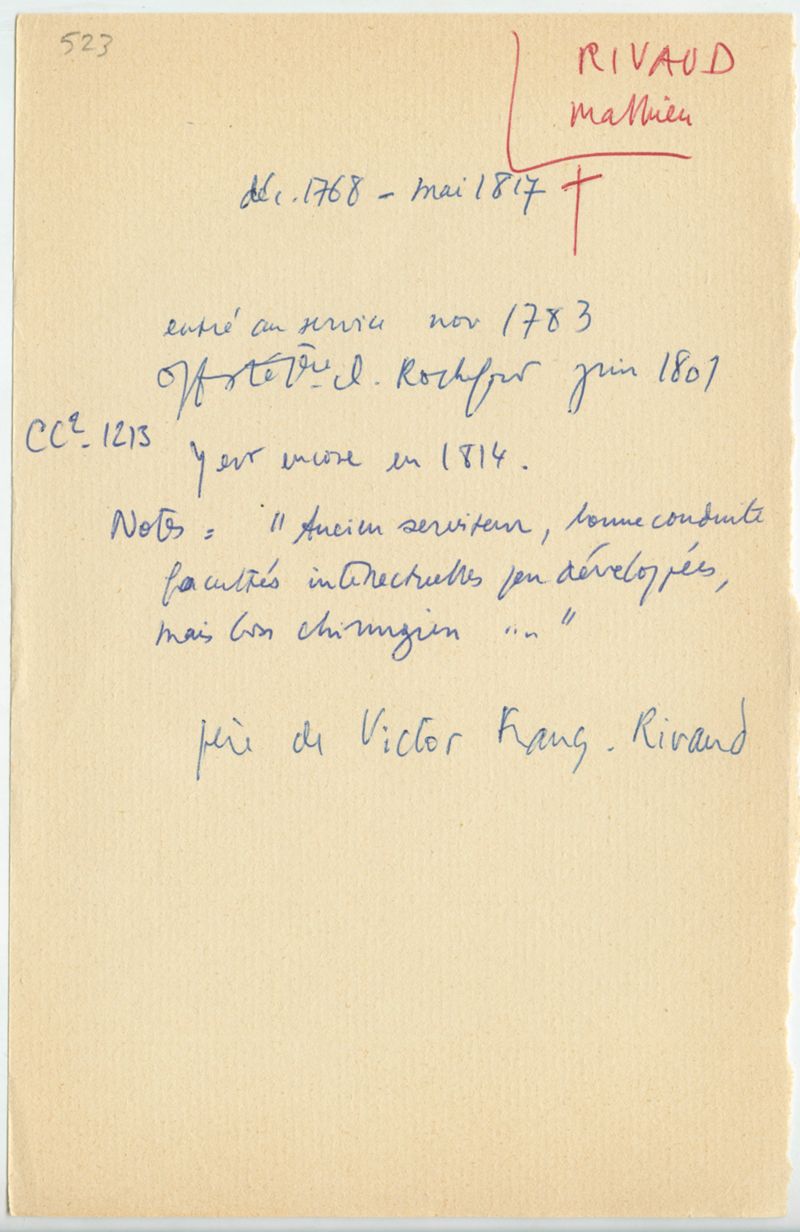 523
RIVAUD
Mathieu
déc. 1768 - mai 1817 †
entré au service nov 1783
Off. Santé 1ère cl. Rochefort juin 1801
CC2. 1213
y est encore en 1814.
Notes = "Ancien serviteur, bonne conduite
facultés intellectuelles peu développées,
mais bon chirurgien ..."
père de Victor Franç. Rivaud